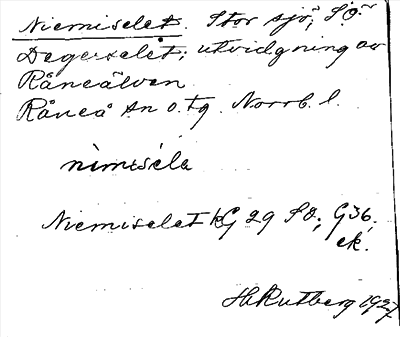 Niemiselet. Stor sjö; SO
Degerselet; utvidgning av
Råneälven
Råneå sn o. tg. Norrb. l.
nìmiséla
Niemiselet kG 29 SO; G36,
ek.
H Rutberg 1927